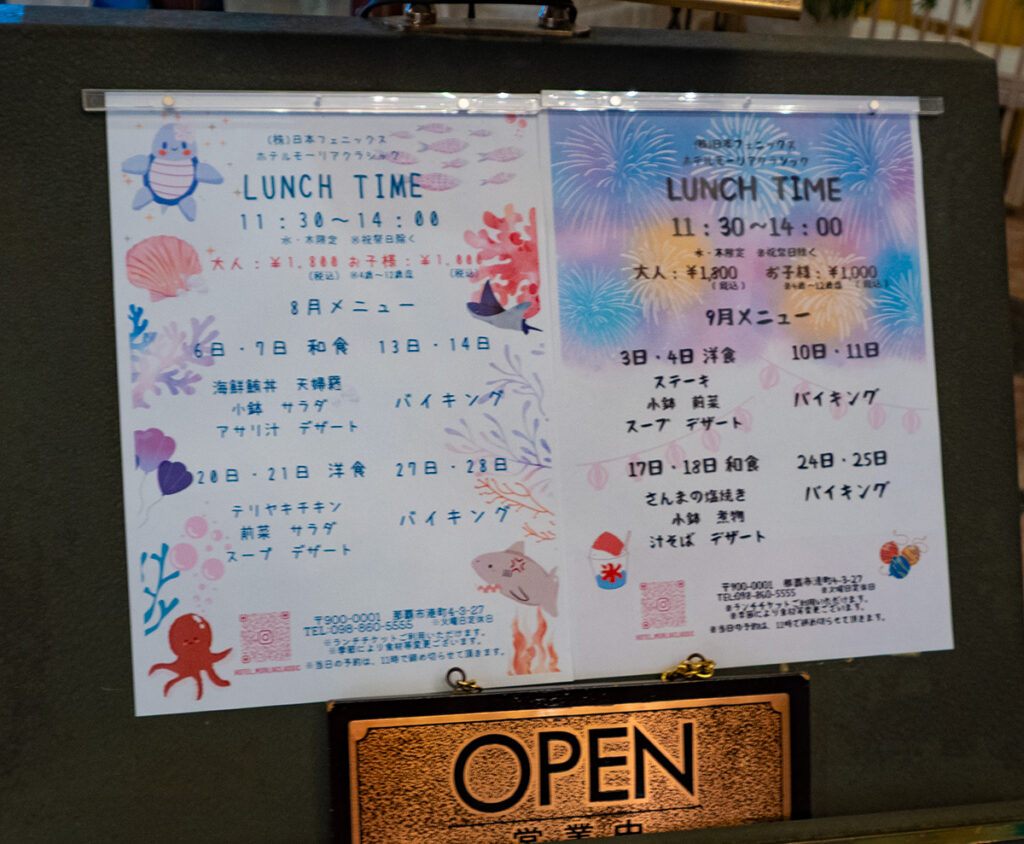 (株)日本フェニックス
ホテルモーリアクラシック
LUNCH TIME
11：30～14：00
水・木限定 ※祝祭日除く
大人：￥1,800 お子様：￥1,000
(税込) ※4歳～12歳迄 (税込)
8月メニュー
6日・7日 和食
海鮮鮪丼 天婦羅
小鉢 サラダ
アサリ汁 デザート
13日・14日
バイキング
20日・21日 洋食
テリヤキチキン
前菜 サラダ
スープ デザート
27日・28日
バイキング
〒900-0001 那覇市港町4-3-27
TEL:098-860-5555 ※火曜日定休日
※ランチチケットご利用いただけます。
※季節により食材等変更ございます。
※当日の予約は、11時で締め切らせて頂きます。
(株)日本フェニックス
ホテルモーリアクラシック
LUNCH TIME
11：30～14：00
水・木限定 ※祝祭日除く
大人：￥1,800 お子様：￥1,000
(税込) ※4歳～12歳迄 (税込)
9月メニュー
3日・4日 洋食
ステーキ
小鉢 前菜
スープ デザート
10日・11日
バイキング
17日・18日 和食
さんまの塩焼き
小鉢 煮物
汁そば デザート
24日・25日
バイキング
氷
〒900-0001 那覇市港町4-3-27
TEL:098-860-5555 ※火曜日定休日
※ランチチケットご利用いただけます。
※季節により食材等変更ございます。
※当日の予約は、11時で締め切らせて頂きます。
OPEN
営業中